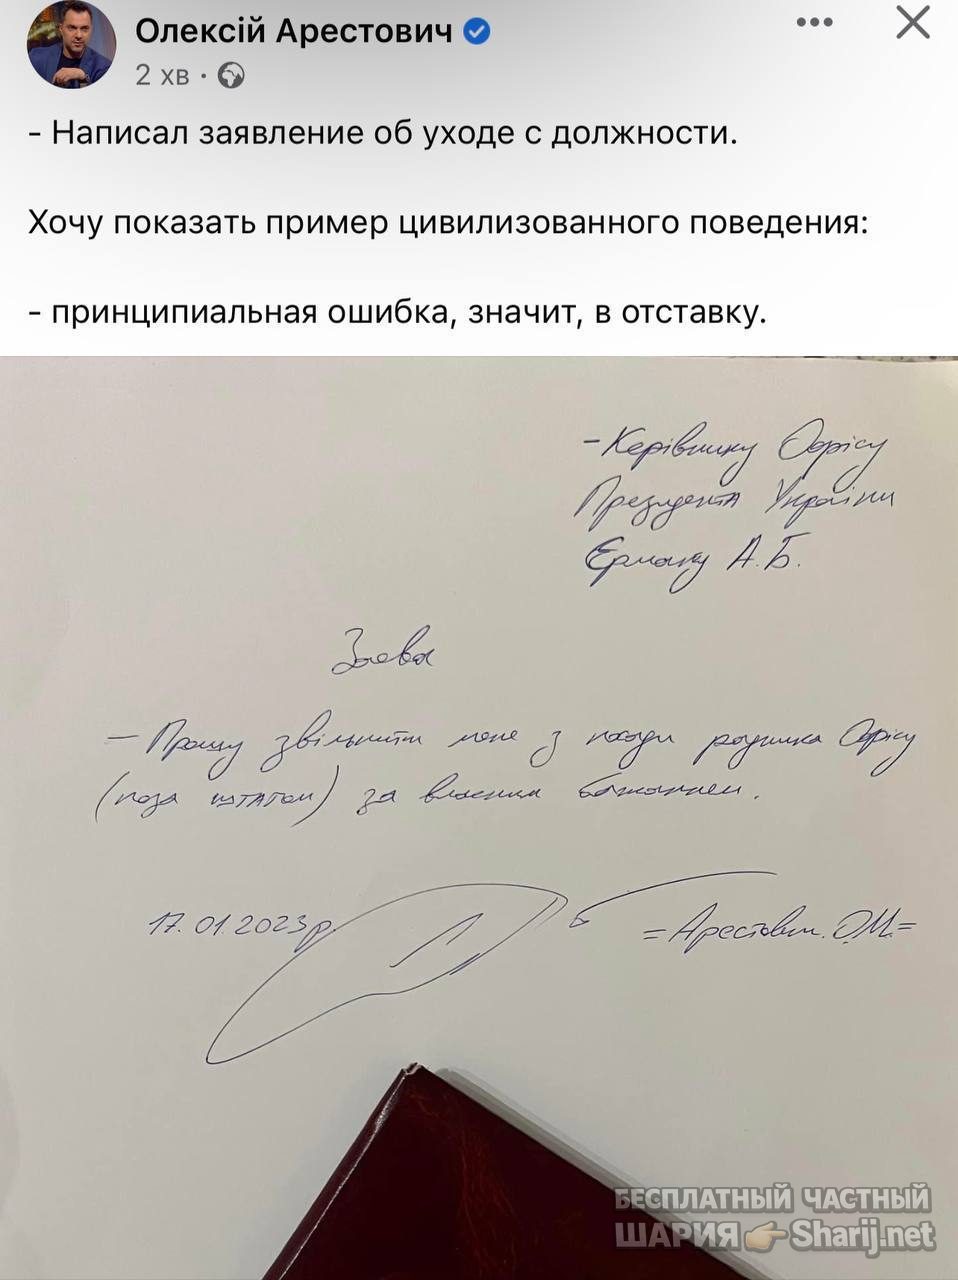 Олексій Арестович
2 хв ·
- Написал заявление об уходе с должности.
Хочу показать пример цивилизованного поведения:
- принципиальная ошибка, значит, в отставку.
- Керівнику Офісу
Президента України
Єрмаку А.Б.
Заява
- Прошу звільнити мене з посади радника Офісу
(поза штатом) за власним бажанням.
17.01.2023р.
=Арестович О.М.=
БЕСПЛАТНЫЙ ЧАСТНЫЙ
ШАРИЯ 👉 Sharij.net